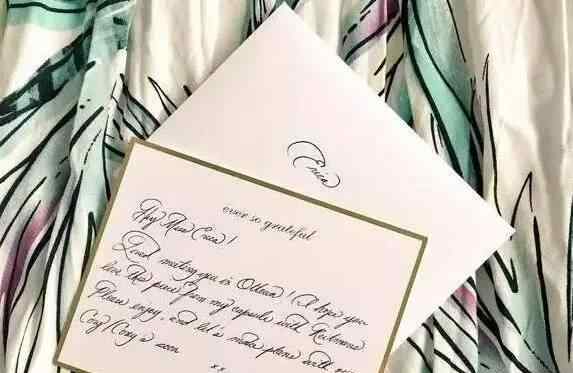 Erica
ever so grateful
Hey Miss Erica!
Loved meeting you in Ottawa! I hope you
love this piece from my capsule with Reitmans
Please enjoy, and let's make plans with
soon
xx